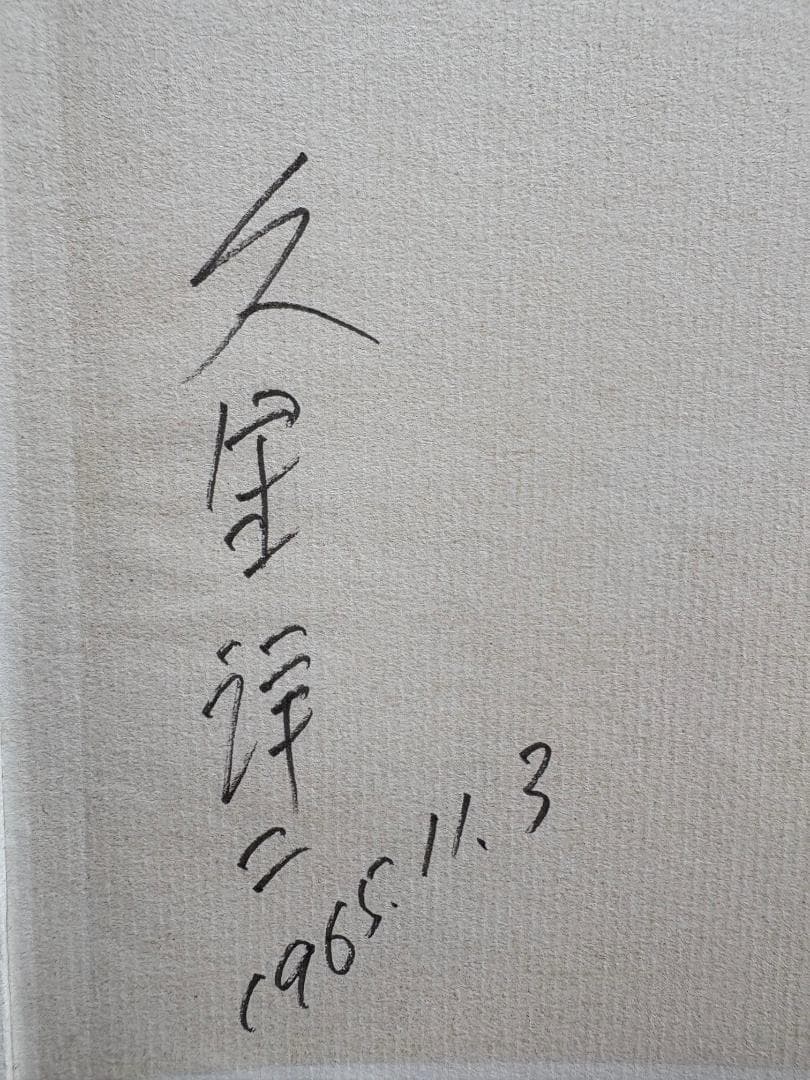 久詳二
1965.11.3